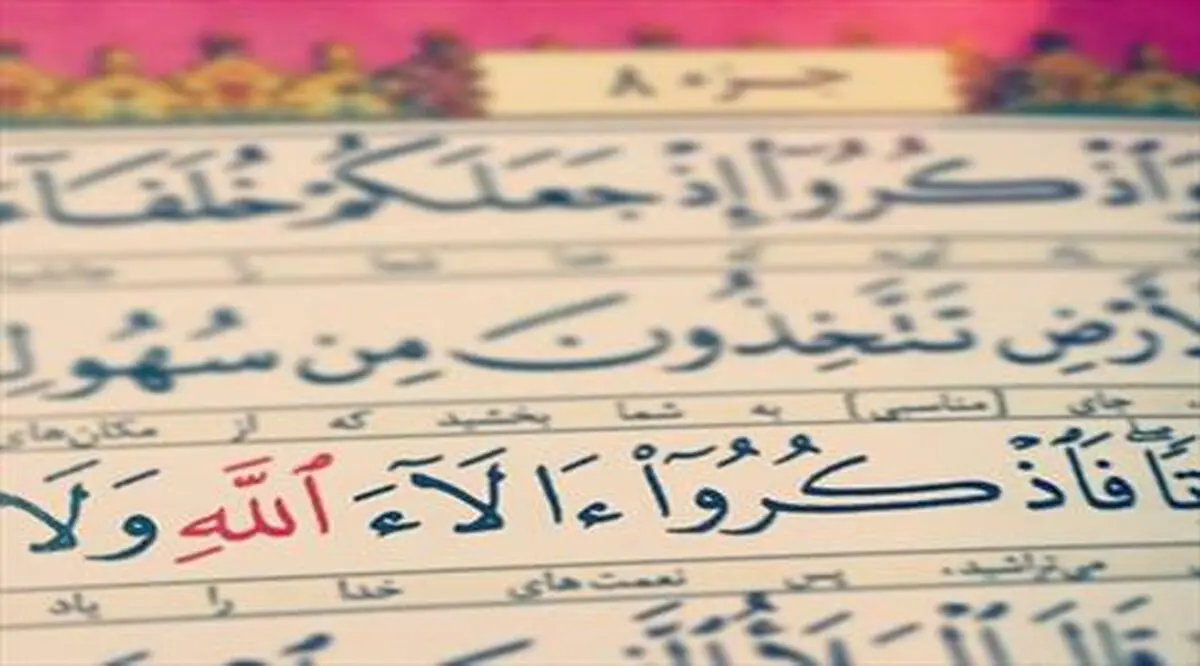 جزء ۸
وَٱذۡكُرُوٓاْ إِذۡ جَعَلَكُمۡ خُلَفَآءَ
تَتَّخِذُونَ مِن سُهُولِ
جای (مناسبی) به شما بخشید که از مکان‌های
فَٱذۡكُرُوٓاْ ءَالَآءَ ٱللَّهِ وَلَا
می‌تراشید، پس نعمت‌های خدا را یاد
قَالَ ٱلۡمَلَأُ